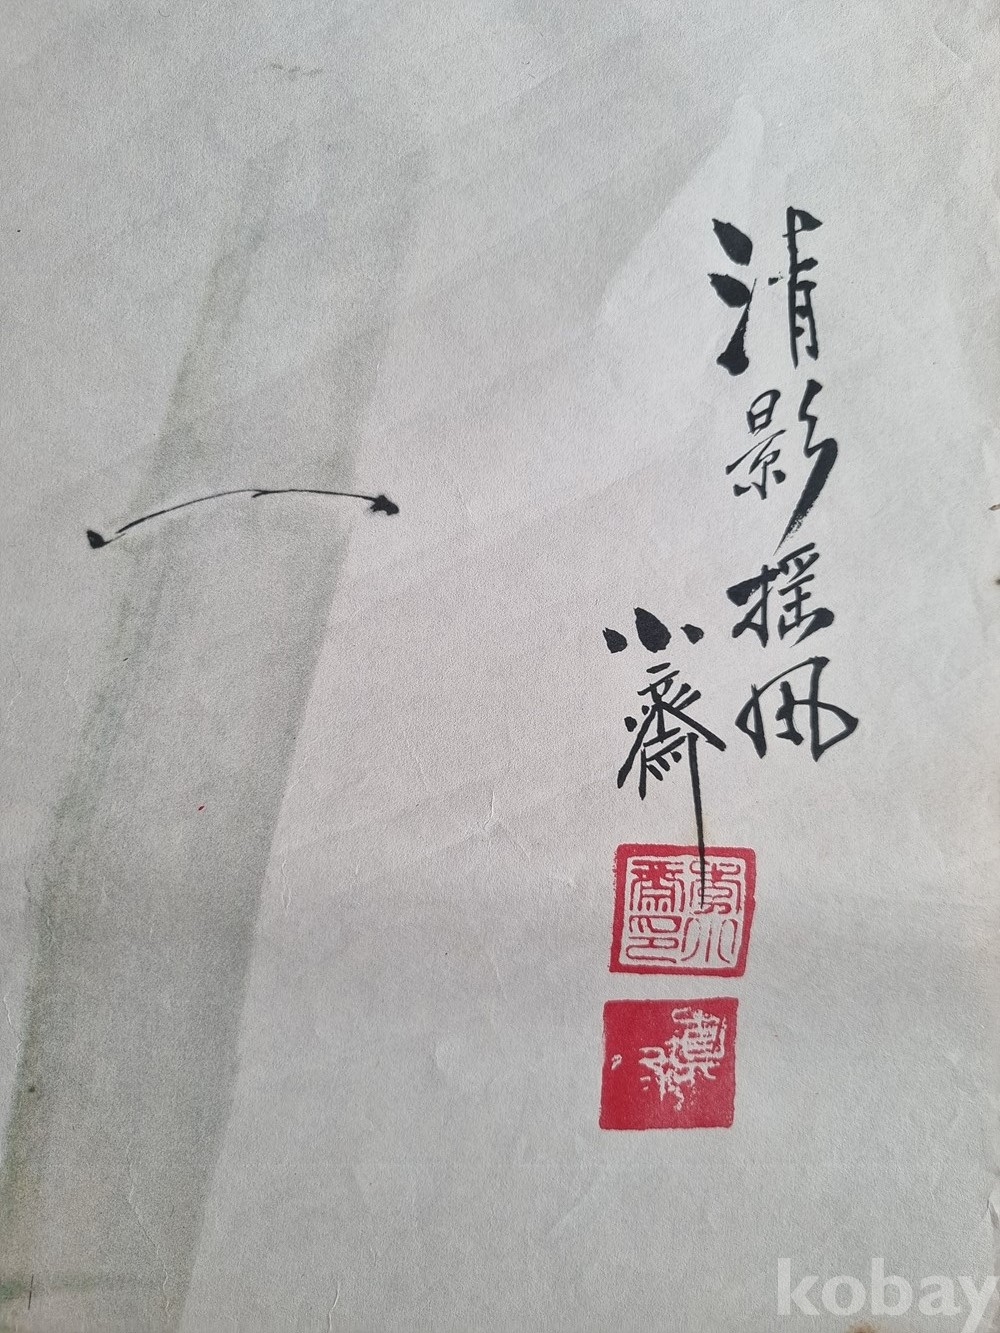 清影搖風
小齋
kobay